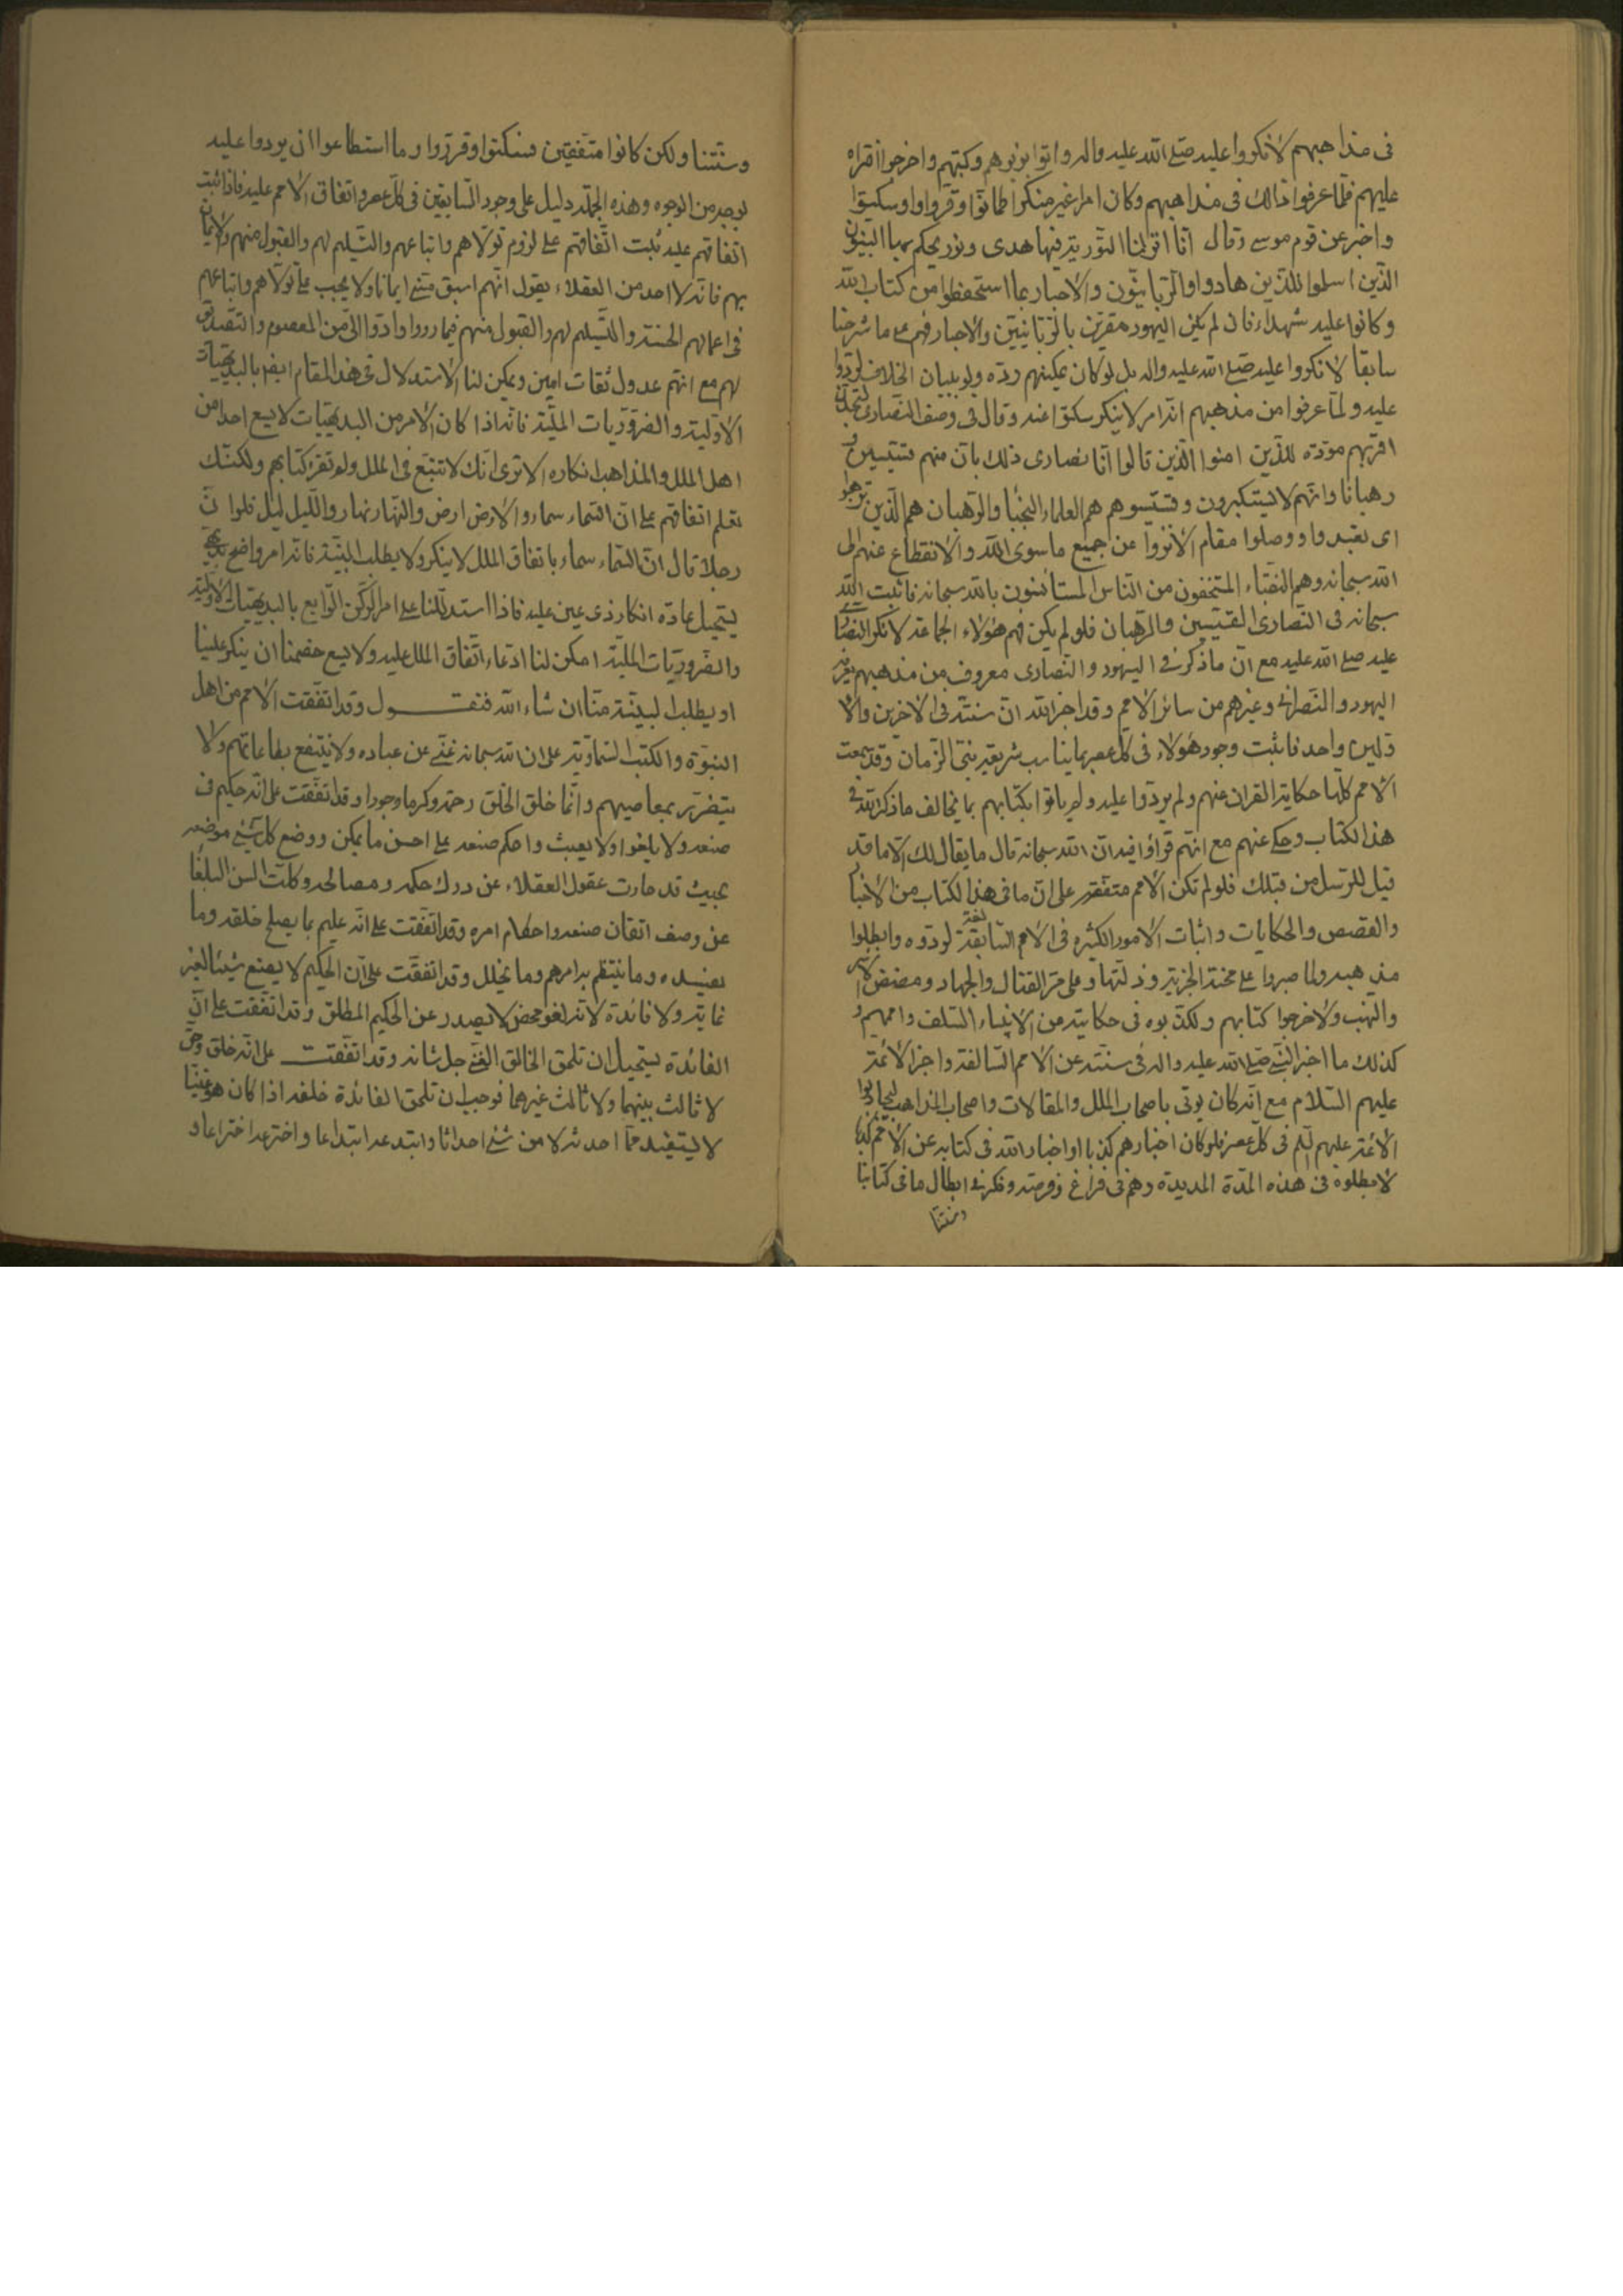 فى مذاهبهم لانكروا عليه صلى الله عليه واله واتوا بزبوهم وكتبهم واخرجوا اقراه
عليهم فلما عرفوا ذالك فى مذاهبهم وكان امرا غير منكر اطمانوا وقروا وسكتوا
واخبر عن قوم موسى وقال انا انزلنا التورية فيها هدى ونور يحكم بها النبيون
الذين اسلموا للذين هادوا والربانيون والاحبار بما استحفظوا من كتاب الله
وكانوا عليه شهداء فان لم يكن اليهود مقرين بالربانيين والاحبار فيهم على ما شرحنا
سابقا لانكروا عليه صلى الله عليه واله بل لو كان يمكنهم رده ولو ببيان الخلاف لردوا
عليه ولما عرفوا من مذهبهم انه امر لا ينكر سكتوا عنه وقال فى وصف النصارى لتجدن
اقربهم مودة للذين امنوا الذين قالوا انا نصارى ذلك بان منهم قسيسين و
رهبانا وانهم لا يستكبرون وقسيسوهم هم العلماء النجبا والرهبان هم الذين ترهبوا
اى تعبدوا ووصلوا مقام الانزوا عن جميع ما سوى الله والانقطاع عنهم الى
الله سبحانه وهم النقباء المتخفون من الناس المستأنسون بالله سبحانه فاثبت الله
سبحانه فى النصارى القسيسين والرهبان فلو لم يكن فيهم هؤلاء الجماعة لانكر النصارى
عليه صلى الله عليه مع ان ما ذكر فى اليهود والنصارى معروف من مذهبهم يعرفه
اليهود والنصارى وغيرهم من سائر الامم وقد اخبر الله ان سنته فى الاخرين والا
ولين واحد فاثبت وجود هؤلاء فى كل عصر بما يناسب شريعة نبى الزمان وقد سمعت
الامم كلها حكاية القران عنهم ولم يردوا عليه ولم ياتوا بكتابهم بما يخالف ما ذكر الله فى
هذا الكتاب وحكى عنهم مع انهم قراؤا فيه ان الله سبحانه قال ما يقال لك الا ما قد
قيل للرسل من قبلك فلو لم تكن الامم متفقة على ان ما فى هذا الكتاب من الاخبا
والقصص والحكايات واثبات الامور الكثيره فى الامم السابقة لردوه وابطلوا
مذهبه ولما صبروا على محنة الجزية وذلتها وعلى مر القتال والجهاد ومضض الاسر
والنهب ولاخرجوا كتابهم ولكذبوه فى حكايته من الانبياء السلف واممهم و
كذلك ما اخبر النبى صلى الله عليه واله فى سنته عن الامم السالفة واخبر الائمة
عليهم السلام مع انه كان يوتى باصحاب الملل والمقالات واصحاب المذاهب ليجادلوا
الائمة عليهم السلم فى كل عصر فلو كان اخبارهم كذبا او اخبار الله فى كتابه عن الامم كذبا
لابطلوه فى هذه المدة المديدة وهم فى فراغ وفرصة وفكر فى ابطال ما فى كتابنا
وسنتنا
وسنتنا ولكن كانوا متفقين فسكتوا وقرروا وما استطاعوا ان يردوا عليه
بوجه من الوجوه وهذه الجملة دليل على وجود السابقين فى كل عصر واتفاق الامم عليه فاذا ثبت
اتفاقهم عليه ثبت اتفاقهم على لزوم تولاهم واتباعهم والتسليم لهم والقبول منهم والايمان
بهم فانه لا احد من العقلاء يقول انهم اسبق منى ايمانا ولا يجب على تولاهم واتباعهم
فى اعمالهم الحسنة والتسليم لهم والقبول منهم فيما رووا وادوا الى من المعصوم والتصديق
لهم مع انهم عدول ثقات امين ويمكن لنا الاستدلال فى هذا المقام ايضا بالبديهيات
الاولية والضروريات الملية فانه اذا كان الامر من البديهيات لا يسع احدا من
اهل الملل والمذاهب انكاره الا ترى انك لا تتبع فى الملل ولم تقرء كتابهم ولكنك
تعلم اتفاقهم على ان السماء سماء والارض ارض والنهار نهار والليل ليل فلو ان
رجلا قال ان السماء سماء باتفاق الملل لا ينكر ولا يطلب البينة فانه امر واضح بديهى
يستحيل عادة انكار ذى عين عليه فاذا استدللنا على امر الركن الرابع بالبديهيات الاولية
والضروريات الملية امكن لنا ادعاء اتفاق الملل عليه ولا يسع خصمنا ان ينكر علينا
او يطلب البينة منا ان شاء الله فنقول وقد اتفقت الامم من اهل
النبوة والكتب السماوية على ان الله سبحانه غنى عن عباده ولا ينتفع بطاعاتهم ولا
يتضرر بمعاصيهم وانما خلق الخلق رحمة وكرما وجودا وقد اتفقت على انه حكيم فى
صنعه ولا يلغوا ولا يعبث واحكم صنعه على احسن ما يمكن ووضع كل شىء موضعه
بحيث قد حارت عقول العقلاء عن درك حكمه ومصالحه وكلت السن البلغا
عن وصف اتقان صنعه واحكام امره وقد اتفقت على انه عليم بما يصلح خلقه وما
يفسده وما ينتظم به امرهم وما يخلل وقد اتفقت على ان الحكيم لا يصنع شيئا لغير
غاية ولا فائدة لانه لغو محض لا يصدر عن الحكيم المطلق وقد اتفقت على ان
الفائدة يستحيل ان تلحق الخالق الغنى جل شانه وقد اتفقت على انه خلق وحق
لا ثالث بينهما ولا ثالث غيرهما فوجب ان تلحق الفائدة خلقه اذا كان هو غنيا
لا يستفيد مما احدثه لا من شىء احداثا وابتدعه ابتداعا واخترعه اختراعا و